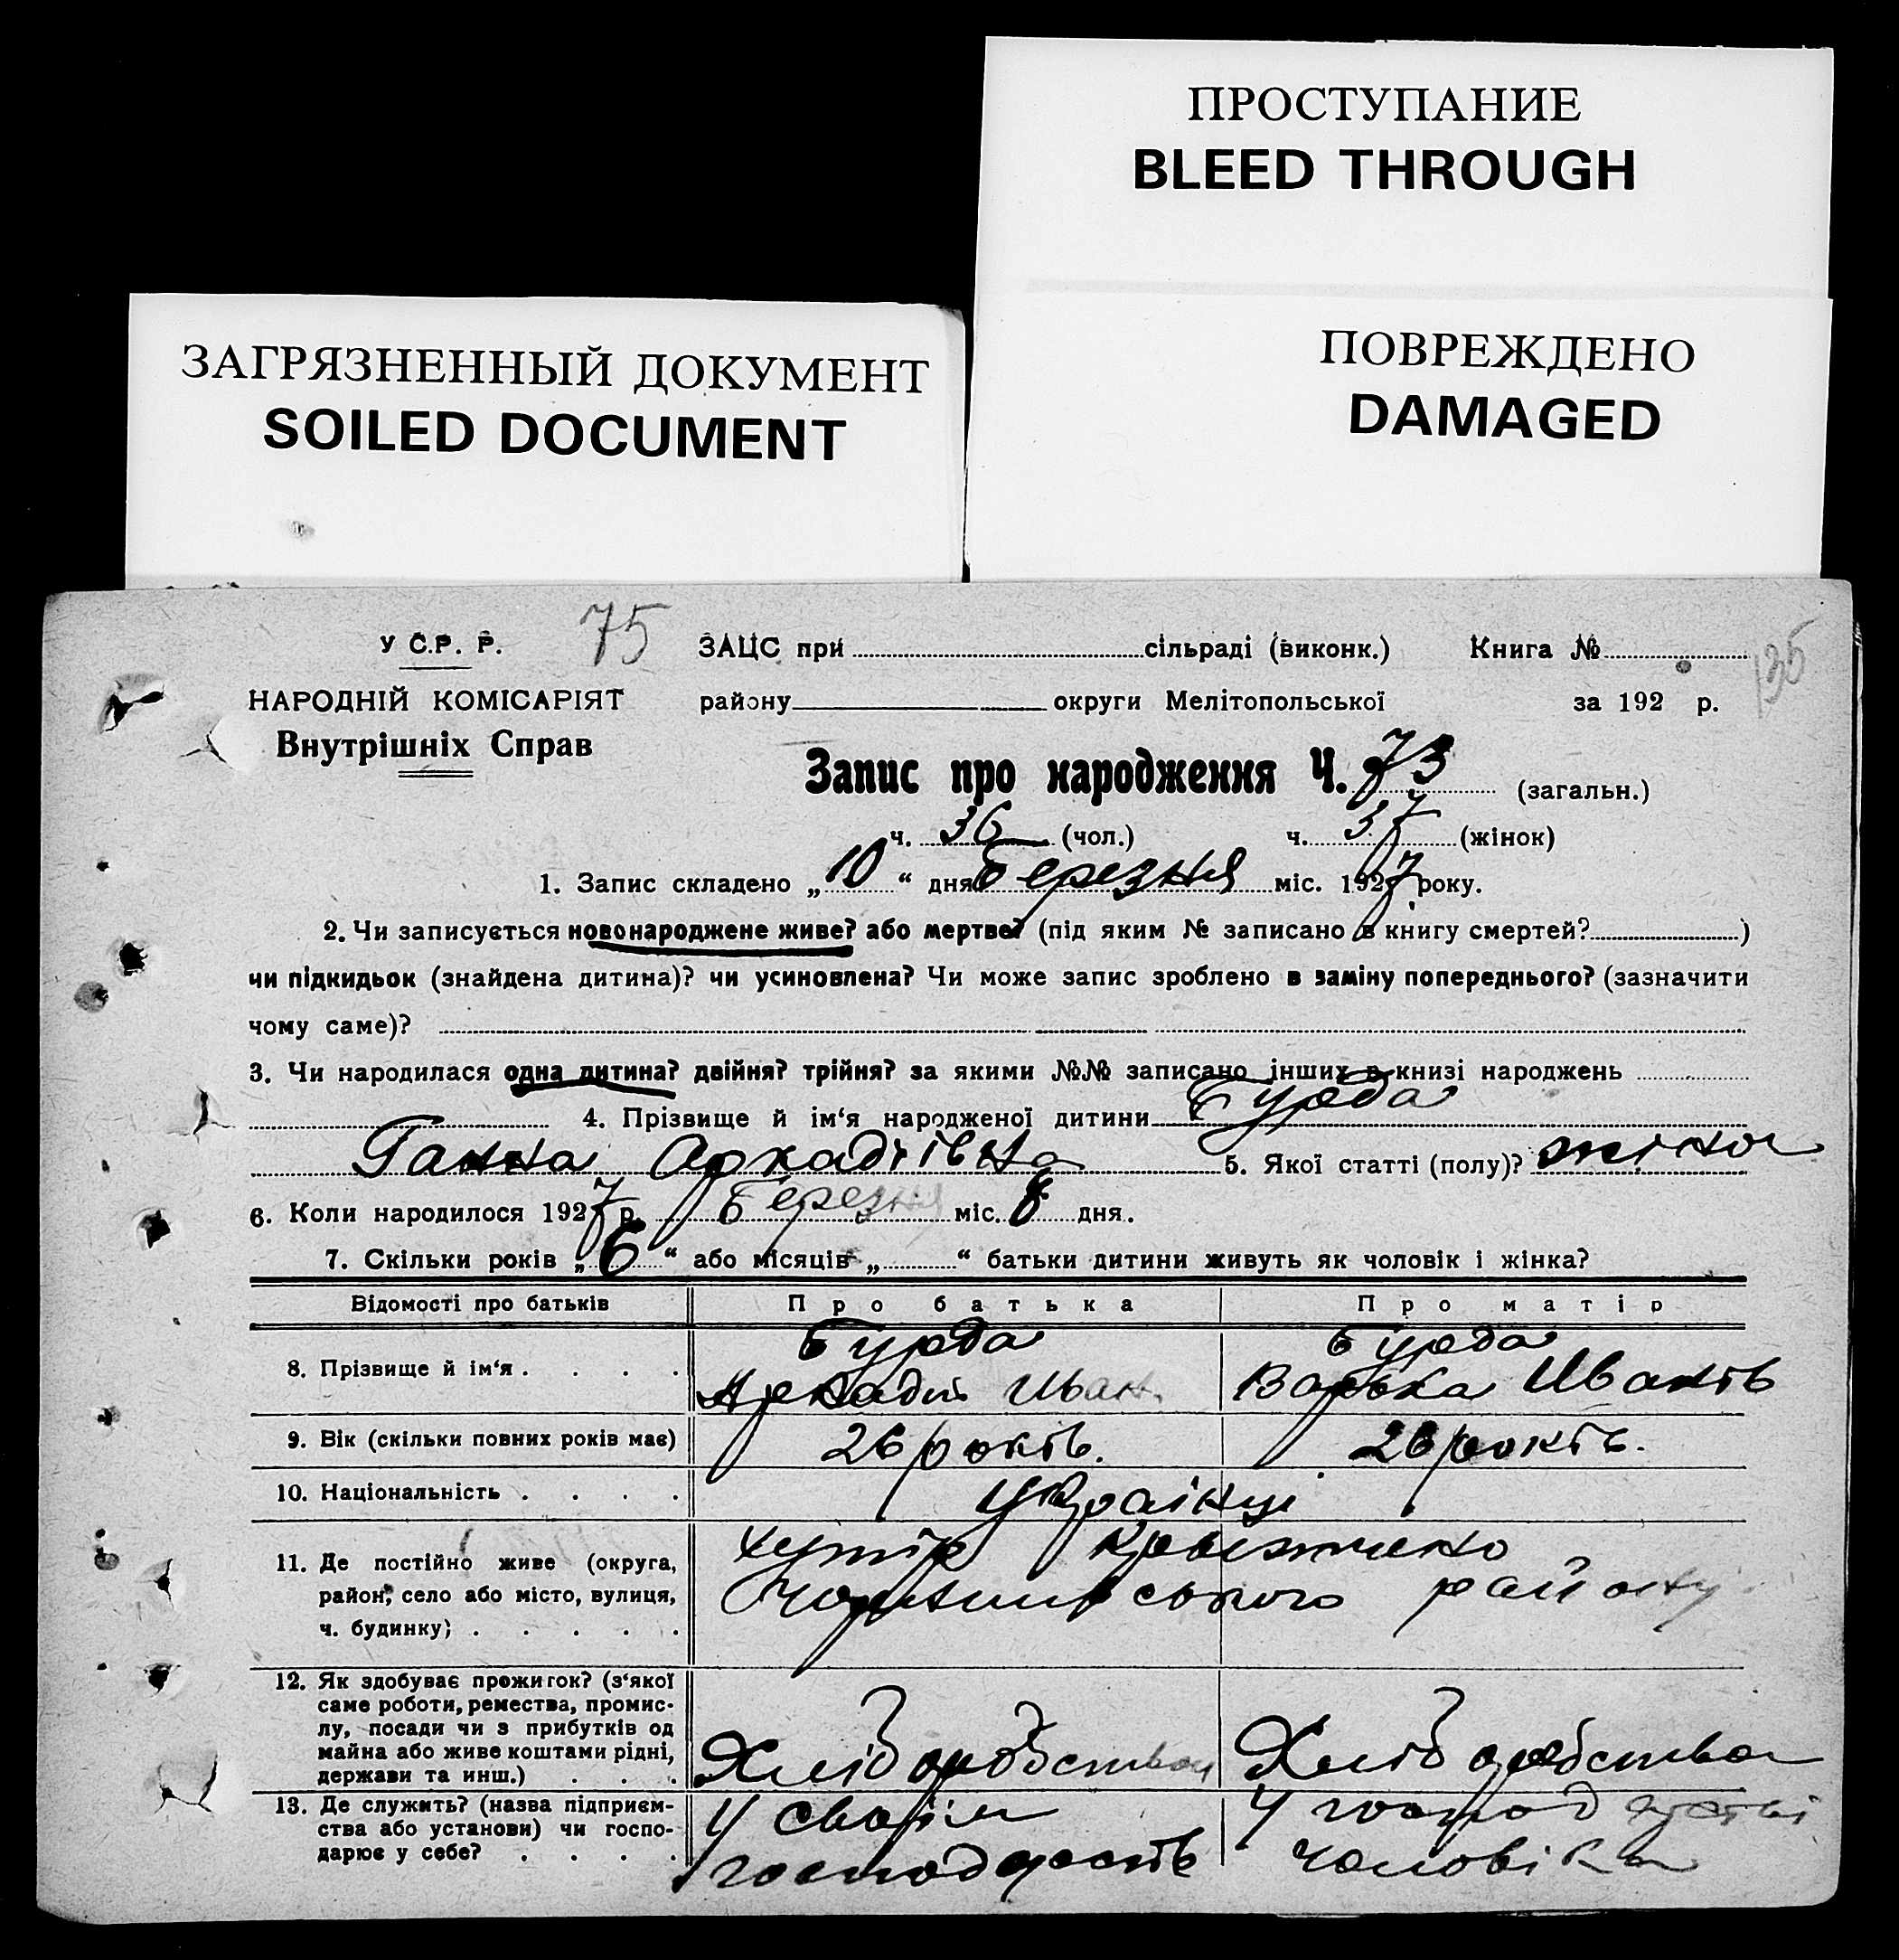 ПРОСТУПАНИЕ
BLEED THROUGH
ЗАГРЯЗНЕННЫЙ ДОКУМЕНТ
SOILED DOCUMENT
ПОВРЕЖДЕНО
DAMAGED
У С.Р. Р. 75 ЗАЦС при сільраді (виконк.) Книга № 135
НАРОДНІЙ КОМІСАРІЯТ району округи Мелітопольської за 192 р.
Внутрішніх Справ
Запис про народження Ч. 73 (загальн.)
ч. 36 (чол.) ч. 37 (жінок)
1. Запис складено „ 10 “ дня березня міс. 1927 року.
2. Чи записується новонароджене живе? або мертве? (під яким № записано в книгу смертей? )
чи підкидьок (знайдена дитина)? чи усиновлена? Чи може запис зроблено в заміну попереднього? (зазначити
чому саме)?
3. Чи народилася одна дитина? двійня? трійня? за якими №№ записано інших в книзі народжень
4. Прізвище й ім‘я народженої дитини Бурда
Ганна Аркадіівна 5. Якої статті (полу)? жіноч
6. Коли народилося 1927 р. Березня міс. 8 дня.
7. Скільки років „ 6 “ або місяців „ “ батьки дитини живуть як чоловік і жінка?
Відомості про батьків Про батька Про матір
Бурда Бурда
8. Прізвище й ім‘я . . . . Аркадій Иван. Варька Иванів
9. Вік (скільки повних років має) 26 років. 26 років.
10. Національність . . . . Українці
11. Де постійно живе (округа, хутір
район, село або місто, вулиця, району
ч. будинку; . . . . .
12. Як здобуває прожиток? (з‘якої
саме роботи, ремества, промис-
лу, посади чи з прибутків од
майна або живе коштами рідні, Хліборобством Хліборобством
держави та инш.) . . .
13. Де служить? (назва підприєм- У своїм У господарстві
ства або установи) чи госпо-
дарює у себе? . . . . господарстві чоловіка